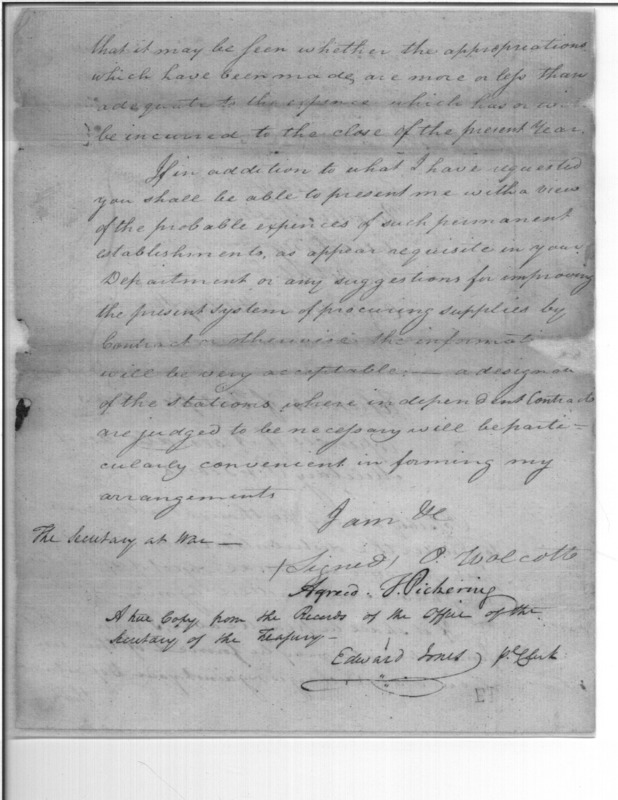 that it may be seen whether the appropreations
which have been made, are more or less than
adequate to the expence which has or wi
be incurred to the close of the present Year.
If in addition to what I have requested
you shall be able to present me with a view
of the probable expences of such permanent
establishments, as appear requisite in your
Department or any suggestions for improving
the present system of procuring supplies by
Contract or otherwise the informati
will be very acceptable:— a designa
of the stations where independent Contracts
are judged to be necessary will be parti-
cularly convenient in forming my
arrangements
I am &c
The Secretary at War—
(Signed) O. Wolcott
Agreed. T. Pickering
A true Copy from the Records of the Office of the
Secretary of the Treasury—
Edward Jones pl. Clerk